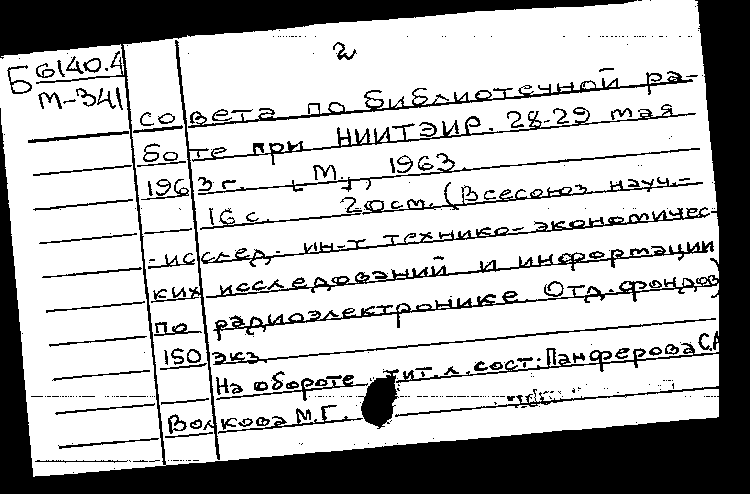 2
Б 6140.4
М-341
совета по библиотечной ра-
боте при НИИТЭИР. 28-29 мая
1963 г. [М.], 1963.
16 с. 20 см. (Всесоюз науч.-
-исслед. ин-т технико-экономичес-
ких исследований и информации
по радиоэлектронике. Отд. фондов)
150 экз.
На обороте тит. л. сост: Панферова С.А
Волкова М.Г.